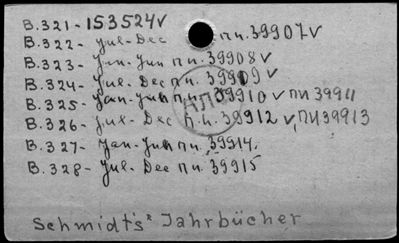 B.321- 153524 V
B.322- Jul-Dec пн. 39907 V
B.323- Jan-Jun пн. 39908 V
B.324- Jul. Dec пн. 39909 V
B.325- Jan-Juh пн. 39910 V пн 39911
B.326- Jul- Dec п.н. 39912 V, пн 39913
B.327- Jan-Juh пн. 39914.
B.328- Jul- Dec пн. 39915
Schmidt's Jahrbücher